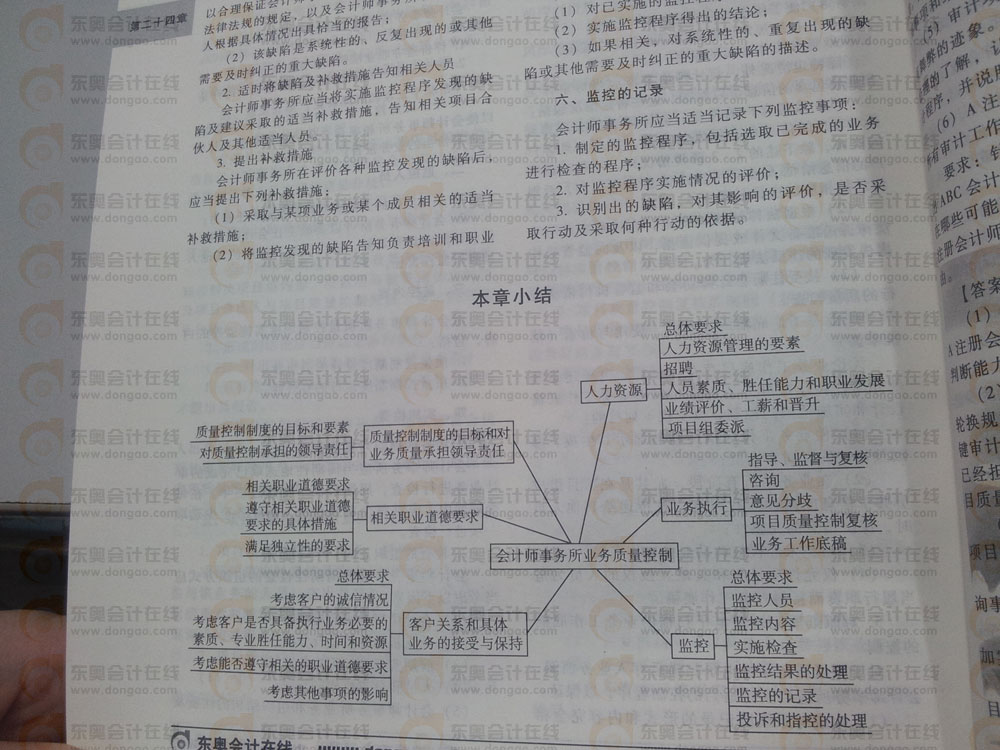 第二十四章
法律法规的规定，以及会计师事务所
人根据具体情况出具恰当的报告；
（2）该缺陷是系统性的、反复出现的或其他
需要及时纠正的重大缺陷。
2. 适时将缺陷及补救措施告知相关人员
会计师事务所应当将实施监控程序发现的缺
陷及建议采取的适当补救措施，告知相关项目合
伙人及其他适当人员。
3. 提出补救措施
会计师事务所在评价各种监控发现的缺陷后，
应当提出下列补救措施；
（1）采取与某项业务或某个成员相关的适当
补救措施；
（2）将监控发现的缺陷告知负责培训和职业
（1）对已实施的监控程序
（2）实施监控程序得出的结论；
（3）如果相关，对系统性的、重复出现的缺
陷或其他需要及时纠正的重大缺陷的描述。
六、监控的记录
会计师事务所应当适当记录下列监控事项：
1. 制定的监控程序，包括选取已完成的业务
进行检查的程序；
2. 对监控程序实施情况的评价；
3. 识别出的缺陷，对其影响的评价，是否采
取行动及采取何种行动的依据。
本章小结
会计师事务所业务质量控制
质量控制制度的目标和对
业务质量承担领导责任
质量控制制度的目标和要素
对质量控制承担的领导责任
相关职业道德要求
相关职业道德要求
遵守相关职业道德
要求的具体措施
满足独立性的要求
客户关系和具体
业务的接受与保持
总体要求
考虑客户的诚信情况
考虑客户是否具备执行业务必要的
素质、专业胜任能力、时间和资源
考虑能否遵守相关的职业道德要求
考虑其他事项的影响
人力资源
总体要求
人力资源管理的要素
招聘
人员素质、胜任能力和职业发展
业绩评价、工薪和晋升
项目组委派
业务执行
指导、监督与复核
咨询
意见分歧
项目质量控制复核
业务工作底稿
监控
总体要求
监控人员
监控内容
实施检查
监控结果的处理
监控的记录
投诉和指控的处理
东奥会计在线
（5）审计
整的迹象。
的了解，
程序，并说明
（6）A注
审计工作
要求：
ABC会计
哪些可能
注册会计师
【答案
（1）
A注册会
判断能力
（2）
轮换规
键审计
已经担
目质量
项目
询事
东奥会计在线
www.dongao.com